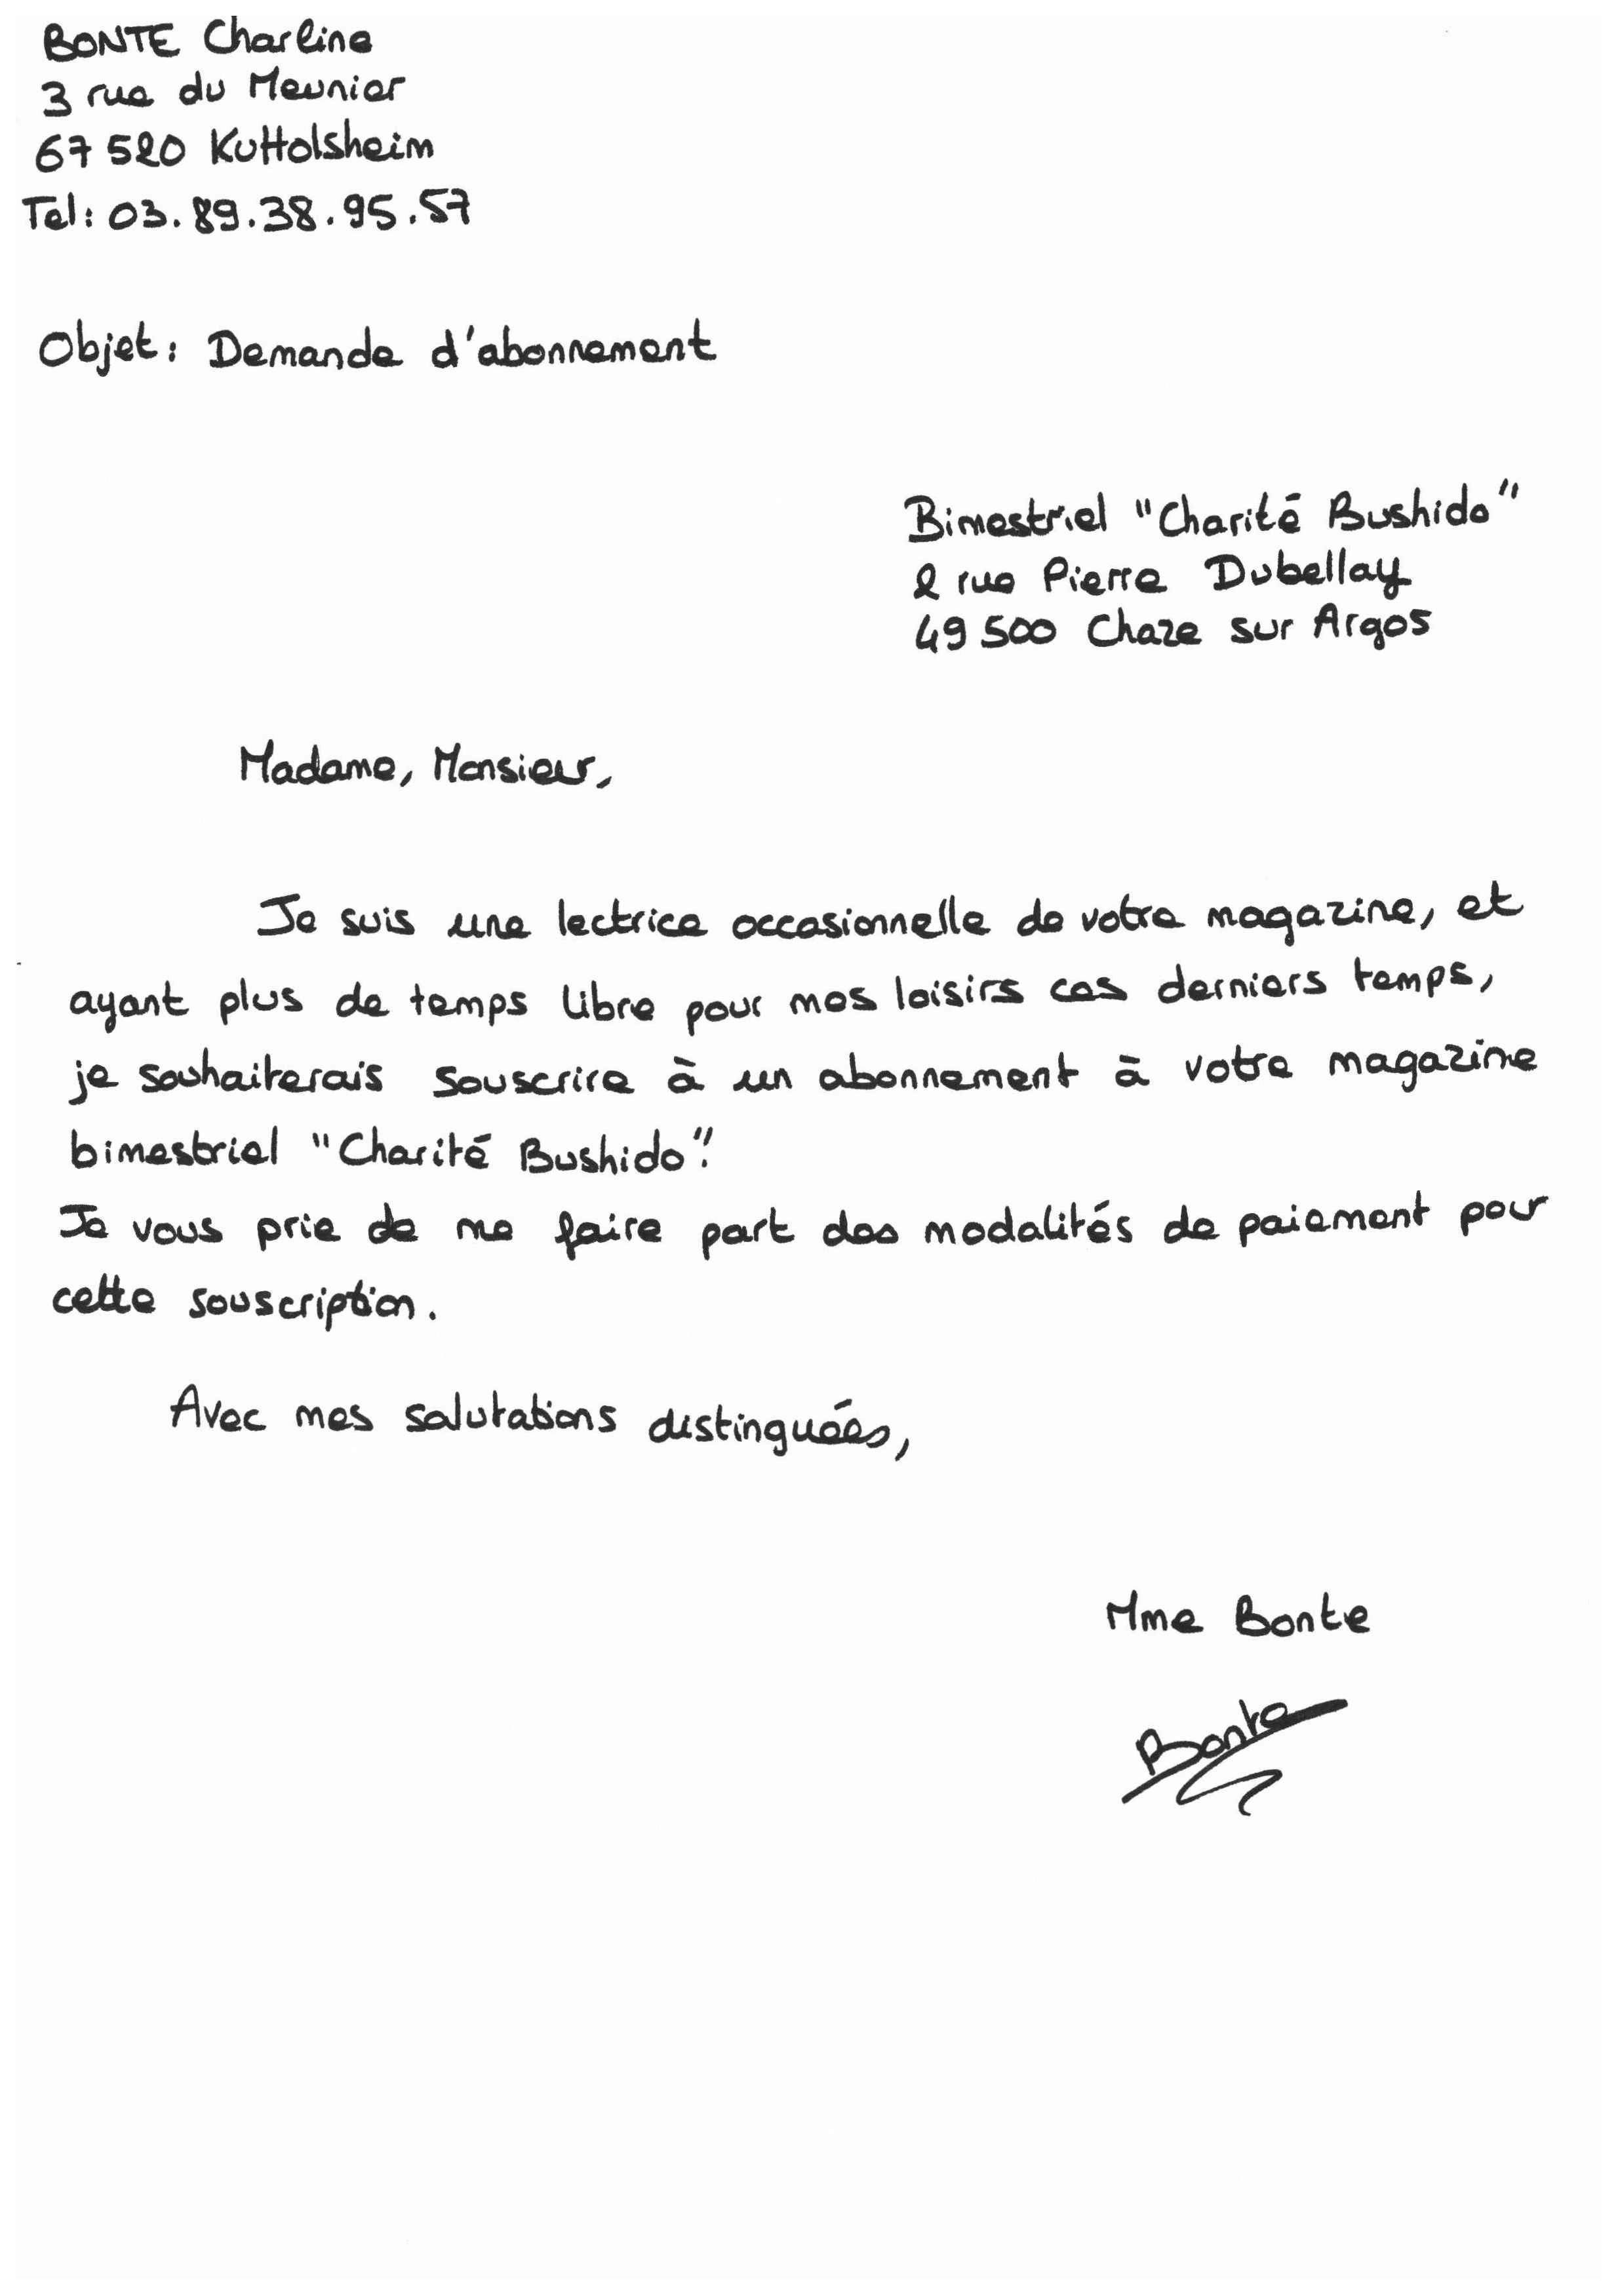 BONTE Charline
3 rue du Meunier
67 520 Kuttolsheim
Tel: 03.89.38.95.57
Objet: Demande d'abonnement
Bimestriel "Charité Bushido"
2 rue Pierre Dubellay
49 500 Chaze sur Argos
Madame, Monsieur,
Je suis une lectrice occasionnelle de votre magazine, et
ayant plus de temps libre pour mes loisirs ces derniers temps,
je souhaiterais souscrire à un abonnement à votre magazine
bimestriel "Charité Bushido".
Je vous prie de me faire part des modalités de paiement pour
cette souscription.
Avec mes salutations distinguées,
Mme Bonte
Bonte